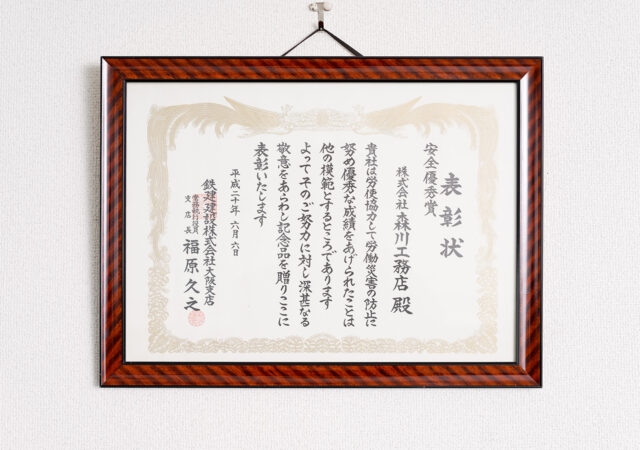 表彰状
安全優秀賞
株式会社 森川工務店 殿
貴社は労使協力して労働災害の防止に
努め優秀な成績をあげられたことは
他の模範とするところであります
よってそのご努力に対し深甚なる
敬意をあらわし記念品を贈りここに
表彰いたします
平成二十年 六月 六日
鉄建建設株式会社大阪支店
常務執行役員
支店長 福原久之